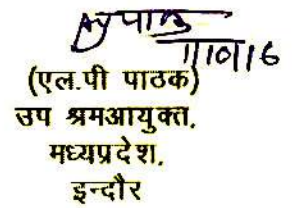 11/10/16
(एल.पी पाठक)
उप श्रमआयुक्त,
मध्यप्रदेश,
इन्दौर